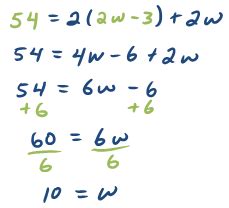 54 = 2(2w-3) + 2w
54 = 4w - 6 + 2w
54 = 6w - 6
+6 +6
60 = 6w
6 6
10 = w